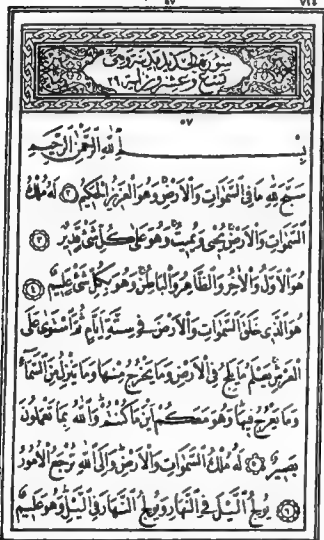 سورة الحديد مدنية وهي
تسع وعشرون آية ٢٩
٥٧
بِسْمِ اللهِ الرَّحْمٰنِ الرَّحِيمِ
سَبَّحَ لِلّٰهِ مَا فِي السَّمٰوَاتِ وَالْاَرْضِ وَهُوَ الْعَزِيزُ الْحَكِيمُ ٢ لَهُ مُلْكُ
السَّمٰوَاتِ وَالْاَرْضِ يُحْيِي وَيُمِيتُ وَهُوَ عَلٰى كُلِّ شَيْءٍ قَدِيرٌ ٣
هُوَ الْاَوَّلُ وَالْاٰخِرُ وَالظَّاهِرُ وَالْبَاطِنُ وَهُوَ بِكُلِّ شَيْءٍ عَلِيمٌ ٤
هُوَ الَّذِي خَلَقَ السَّمٰوَاتِ وَالْاَرْضَ فِي سِتَّةِ اَيَّامٍ ثُمَّ اسْتَوٰى عَلَى
الْعَرْشِ يَعْلَمُ مَا يَلِجُ فِي الْاَرْضِ وَمَا يَخْرُجُ مِنْهَا وَمَا يَنْزِلُ مِنَ السَّمَاءِ
وَمَا يَعْرُجُ فِيهَا وَهُوَ مَعَكُمْ اَيْنَ مَا كُنْتُمْ وَاللهُ بِمَا تَعْمَلُونَ
بَصِيرٌ ٥ لَهُ مُلْكُ السَّمٰوَاتِ وَالْاَرْضِ وَاِلَى اللهِ تُرْجَعُ الْاُمُورُ
٦ يُولِجُ اللَّيْلَ فِي النَّهَارِ وَيُولِجُ النَّهَارَ فِي اللَّيْلِ وَهُوَ عَلِيمٌ